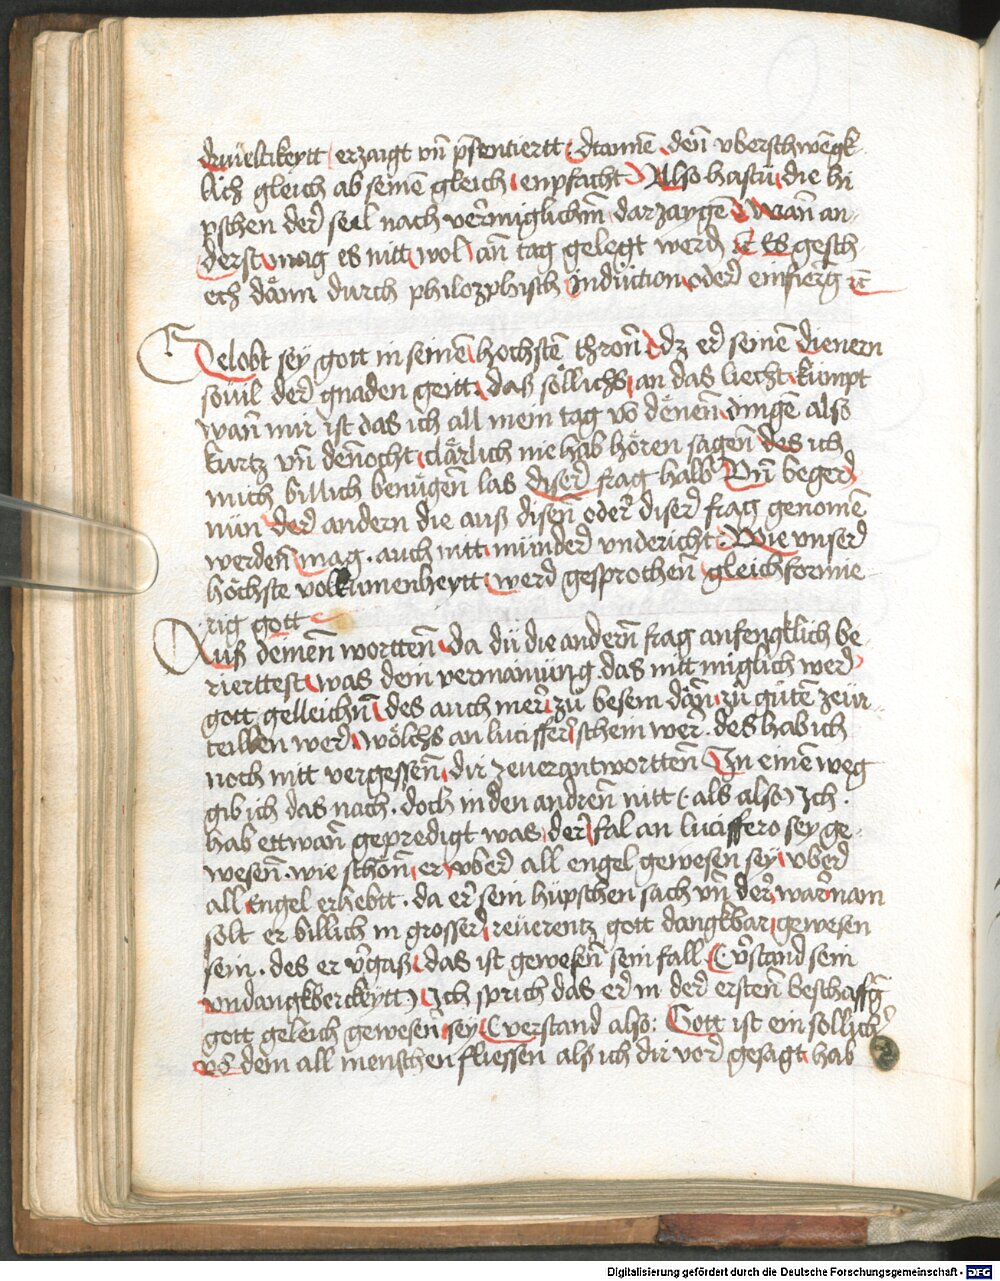 drivueltikeytt erzaigt vn̄ p̄sentiertt. Dtamē. den̄ vberschwēgk-
lich gleich ab seinē gleich enpfacht. Also hastu die hi
pschen der seel nach vermiglichm̄ dar zaygē. wan̄ an-
derst mag es nitt wol an̄ tag gelegt werd̄ ꝛc̄ Es gesch
ech dān̄ durch philozphisch Induction oder einfierg ꝛc̄
Gelobt sey gott in seinē hochstē thron̄ dz er seinē dienern
souil der gnaden geitt. daß söllichs an das liecht kumpt
wan̄ mir ist das ich all mein tag vō denen̄ dingē also
kurtz vn̄ den̄ocht clārlich nie hab hōren sagen̄ des ich
mich billich benügen̄ las diser frag halb Vn̄ beger
nün der andern die auß disen̄ oder diser frag genomē
werden̄ mag. auch nitt münder vndericht. Wie vnser
höchste volkumenheytt werd gesprochen gleichformie-
rig gott
Auß deinen̄ wortten̄ da dü die andern̄ frag anfengklich be-
rierttest was dein vermainüng. das nitt miglich werd
gott gelleichn̄ des auch mer zü besem dan̄ zü gütē zeur-
teillen werd wölchs an luciffer schein wer. des hab ich
noch nitt vergessen̄ dir zeuerantwortten̄ In einē weg
gib ich das nach. doch in den andren̄ nitt (als also) Ich.
hab ettwan̄ gepredigt was der fal an luciffero sey ge-
wesen̄. wie schön̄ er vber all engel gewesen sey vber
all Engel erhebtt. da er sein hüpschen sach vn̄ der war nam
solt er billich in grosser reuerentz gott dangkbar gewesen
sein. des er v̄gaß das ist gewesen̄ sein fall (v̄stand sein
vndangkberckeytt) Ich sprich das er in der ersten̄ beschaffḡ
gott geleich gewesen sey (verstand also: Gott ist ein sollich
vō dem all menschen fliessen als ich dir vor gesagt hab
Digitalisierung gefördert durch die Deutsche Forschungsgemeinschaft - DFG